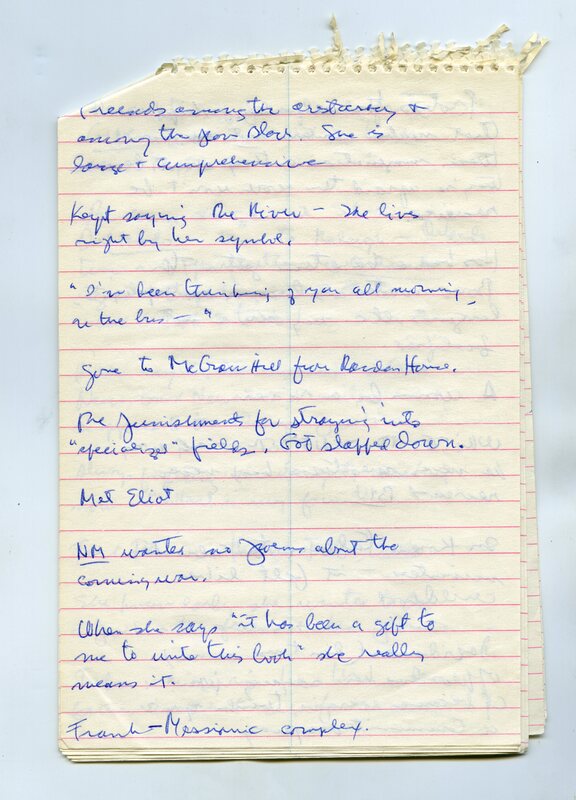 Friends among the aristocracy &
among the poor Black. She is
large & comprehensive
Kept saying The River — She lives
right by her symbol.
"I've been thinking of you all morning
on the bus — "
gone to McGraw Hill from Random House.
The punishments for straying into
"specialized" fields. Got slapped down.
Met Eliot
NM wantes no poems about the
coming war.
When she says "it has been a gift to
me to write this book" she really
means it.
Frank — Messianic complex.